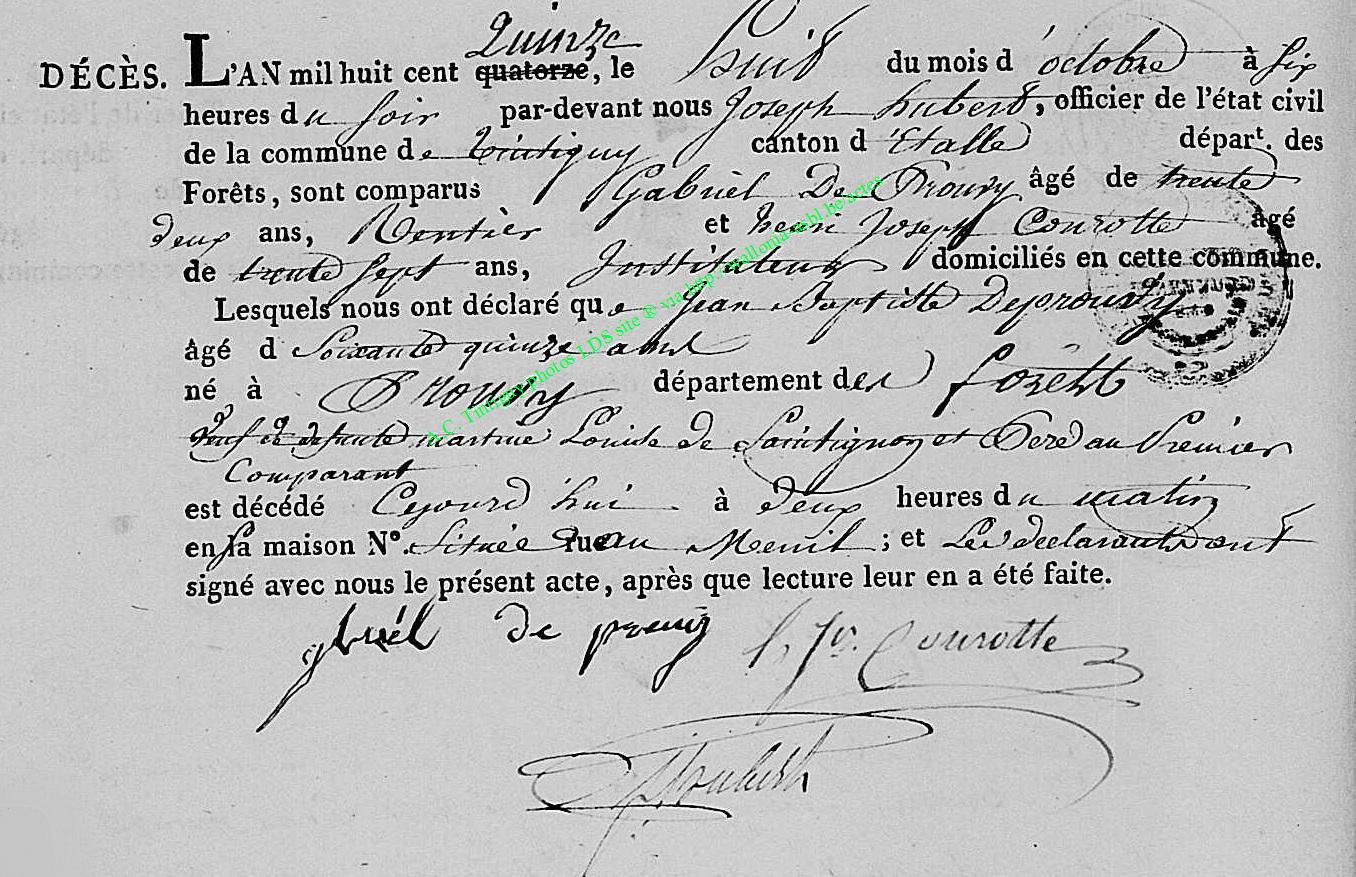 Quinze
DÉCÈS. L'AN mil huit cent quatorze, le huit du mois d'octobre à six
heures du soir par-devant nous Joseph hubert, officier de l'état civil
de la commune de tintigny canton d'Etalle départ. des
Forêts, sont comparus Gabriel De Prouvy âgé de trente
deux ans, Rentier et henri Joseph Courotte âgé
de trente sept ans, Instituteur domiciliés en cette commune.
Lesquels nous ont déclaré que Jean Baptiste Deprouvy
âgé d Soixante quinze ans
né à Prouvy département des forêts
veuf de defunte martine Louise de Saintignon et Pere au Premier
Comparant
est décédé Cejourd'hui à deux heures du matin
en sa maison N°. Située rue au Menil ; et Les declarants ont
signé avec nous le présent acte, après que lecture leur en a été faite.
gbriél de prouvy h. Jh. Courotte
J Hubert
A.C. Tintigny photos LDS site ® via http://wallonia-asbl.be/actes